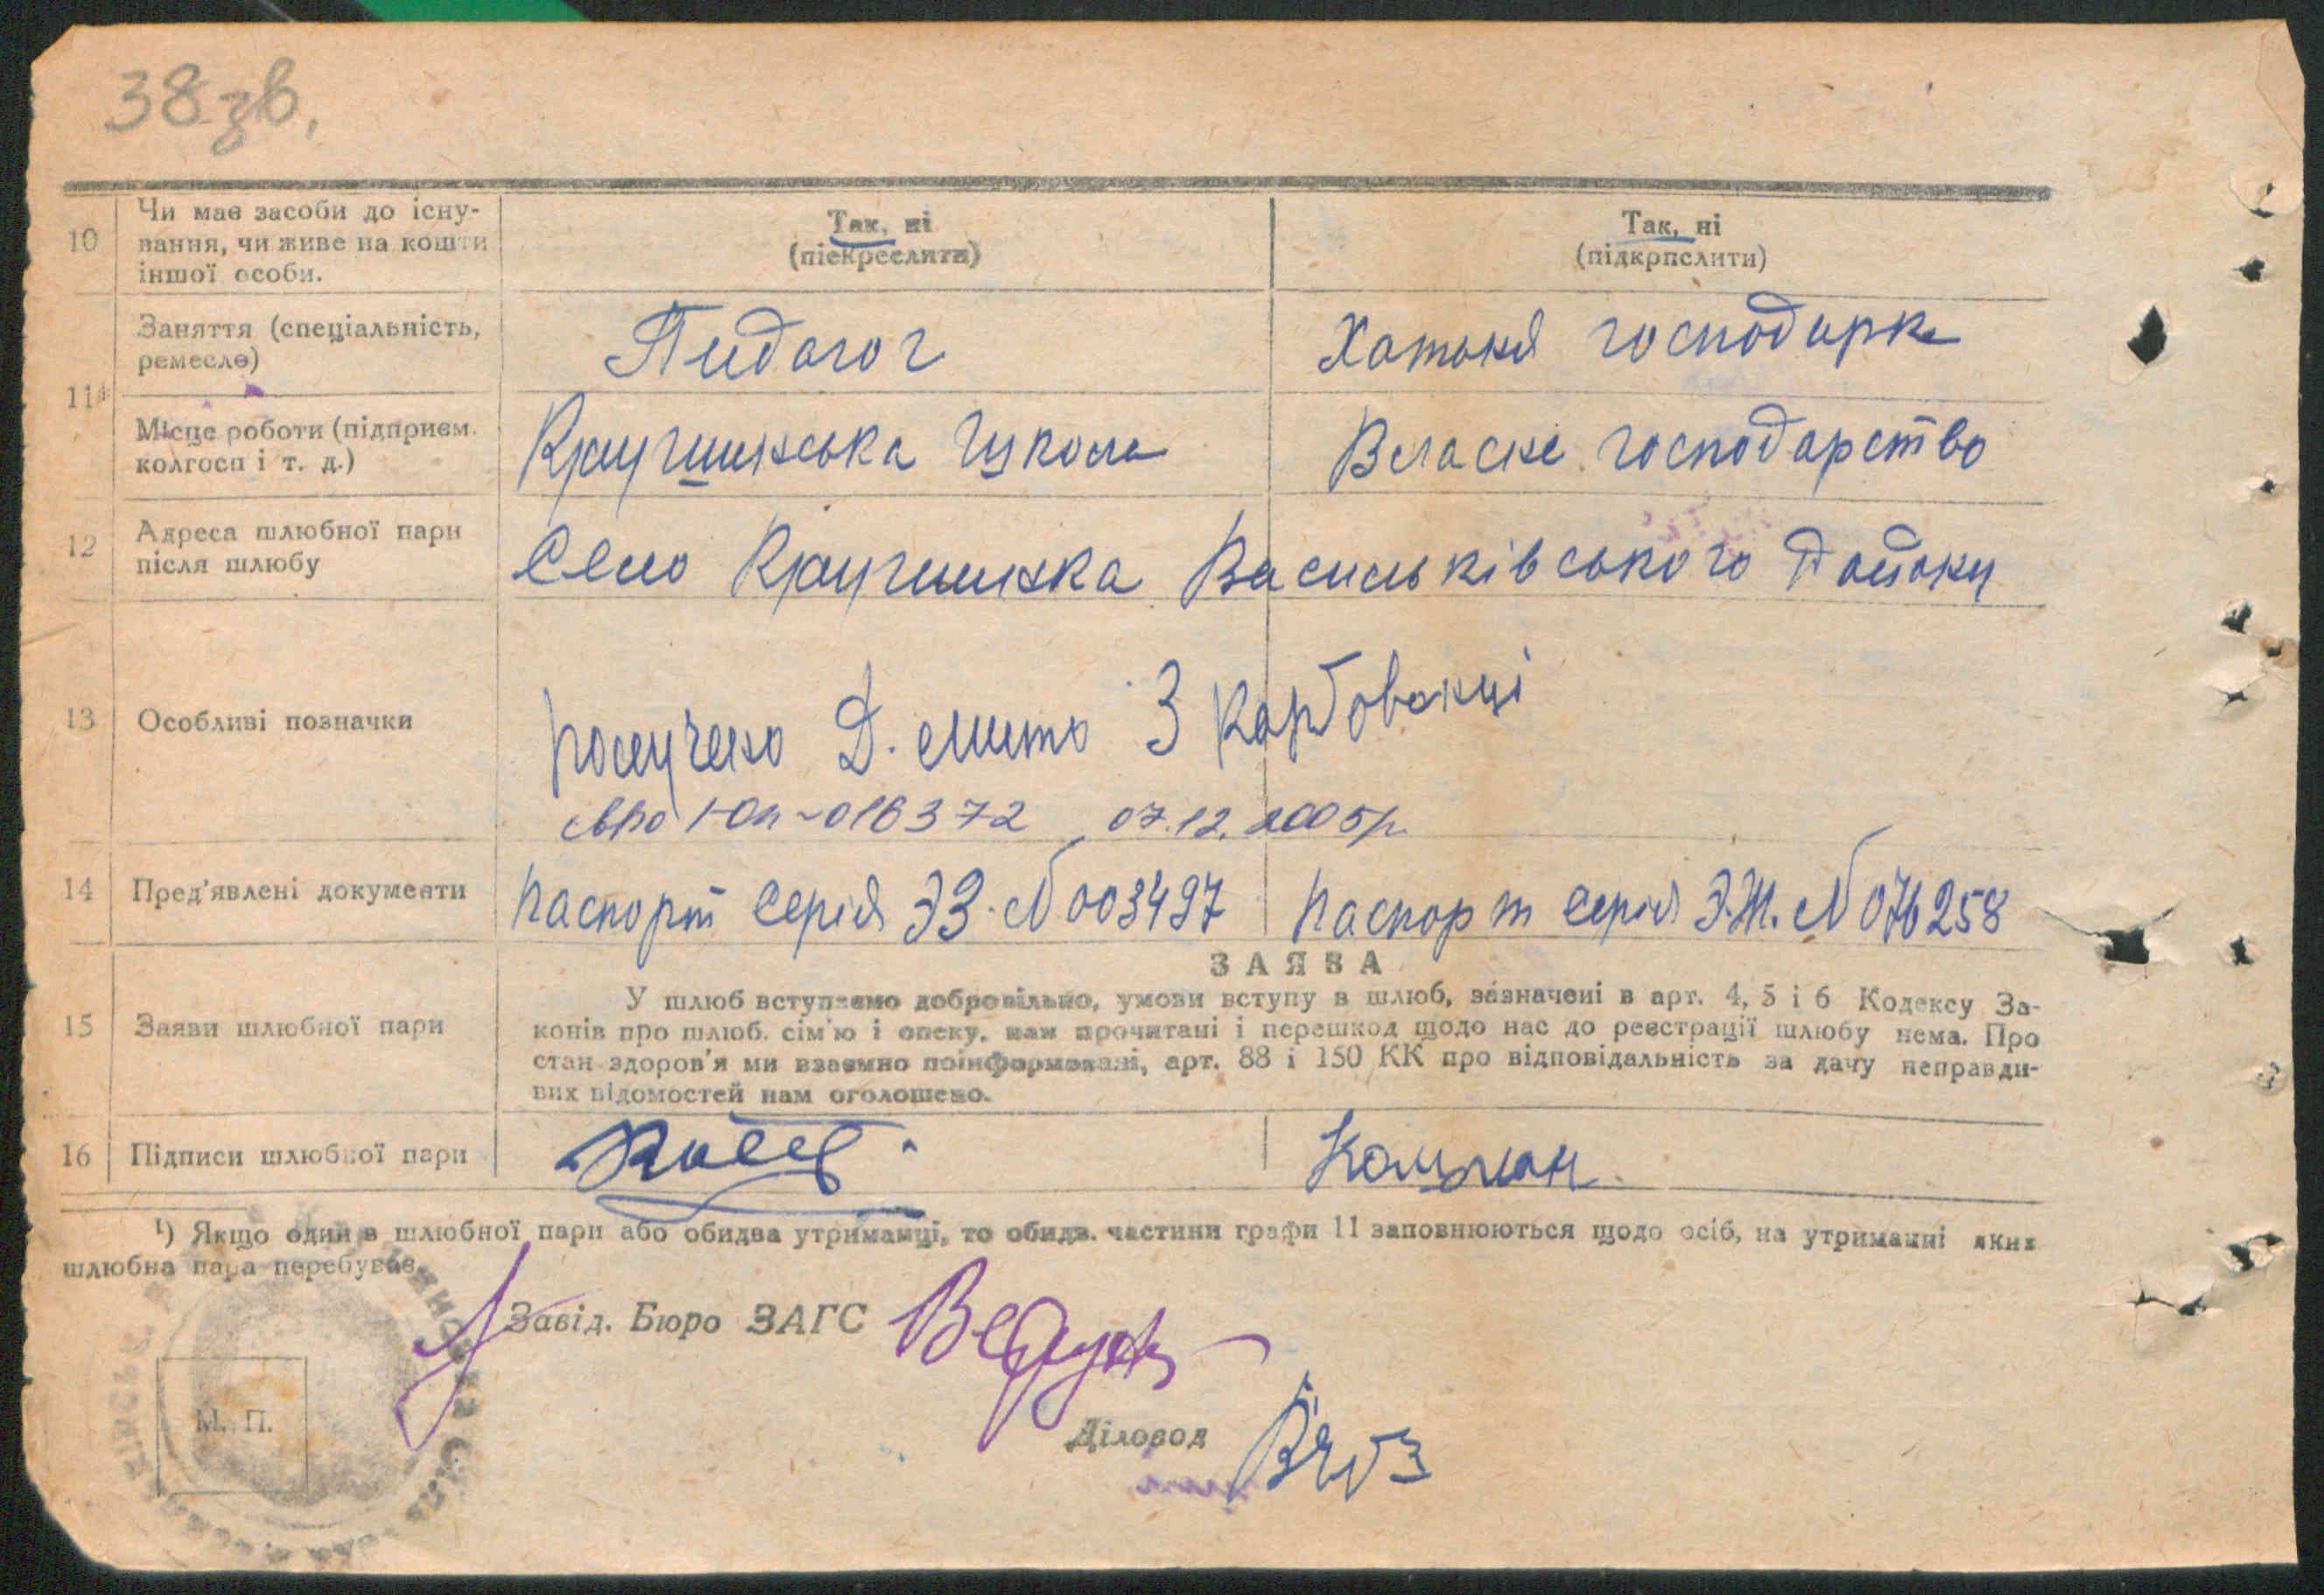 38 зв.
10 Чи має засоби до існу-
вання, чи живе на кошти
іншої особи.
Так, ні
(піекреслити)
Так, ні
(підкрпслити)
11¹
Заняття (спеціальність,
ремесло)
Пидогог
Хатня господарка
Місце роботи (підприєм.
колгосп і т. д.)
Кручинська школа
Власне господарство
12 Адреса шлюбної пари
після шлюбу
Село Васильківського Району
13 Особливі позначки
3 карбованці
07.12.2005р.
14 Пред'явлені документи
Паспорт Серія ЭЗ. N 003497
Паспорт Серія Э.Ж. N 076258
ЗАЯВА
15 Заяви шлюбної пари
У шлюб вступаємо добровільно, умови вступу в шлюб, зазначені в арт. 4, 5 і 6 Кодексу За-
конів про шлюб. сім'ю і опеку, нам прочитані і перешкод щодо нас до реєстрації шлюбу нема. Про
стан здоров'я ми взаємно поінформовані, арт. 88 і 150 КК про відповідальність за дачу неправди-
вих відомостей нам оголошено.
16 Підписи шлюбної пари
¹) Якщо один в шлюбної пари або обидва утриманці, то обидв. частини графи 11 заповнюються щодо осіб, на утриманні яких
шлюбна пара перебуває.
Завід. Бюро ЗАГС
М. П.
Діловод